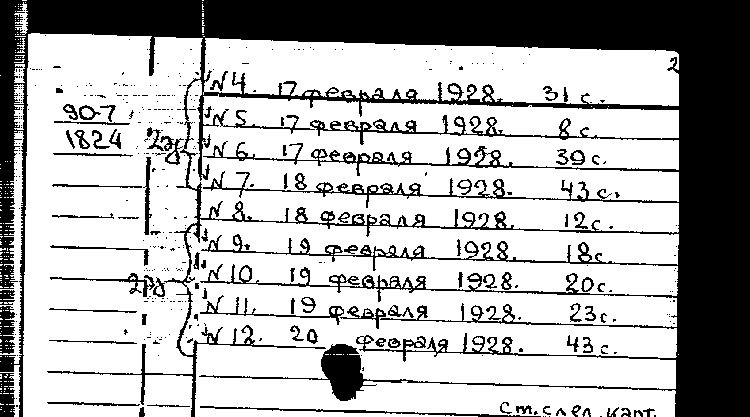 2
N 4. 17 февраля 1928. 31 с.
90-7
N 5. 17 февраля 1928. 8 с.
1824 2эк
N 6. 17 февраля 1928. 39 с.
N 7. 18 февраля 1928. 43 с.
N 8. 18 февраля 1928. 12 с.
N 9. 19 февраля 1928. 18 с.
N 10. 19 февраля 1928. 20 с.
N 11. 19 февраля 1928. 23 с.
N 12. 20 февраля 1928. 43 с.
см. след. карт.